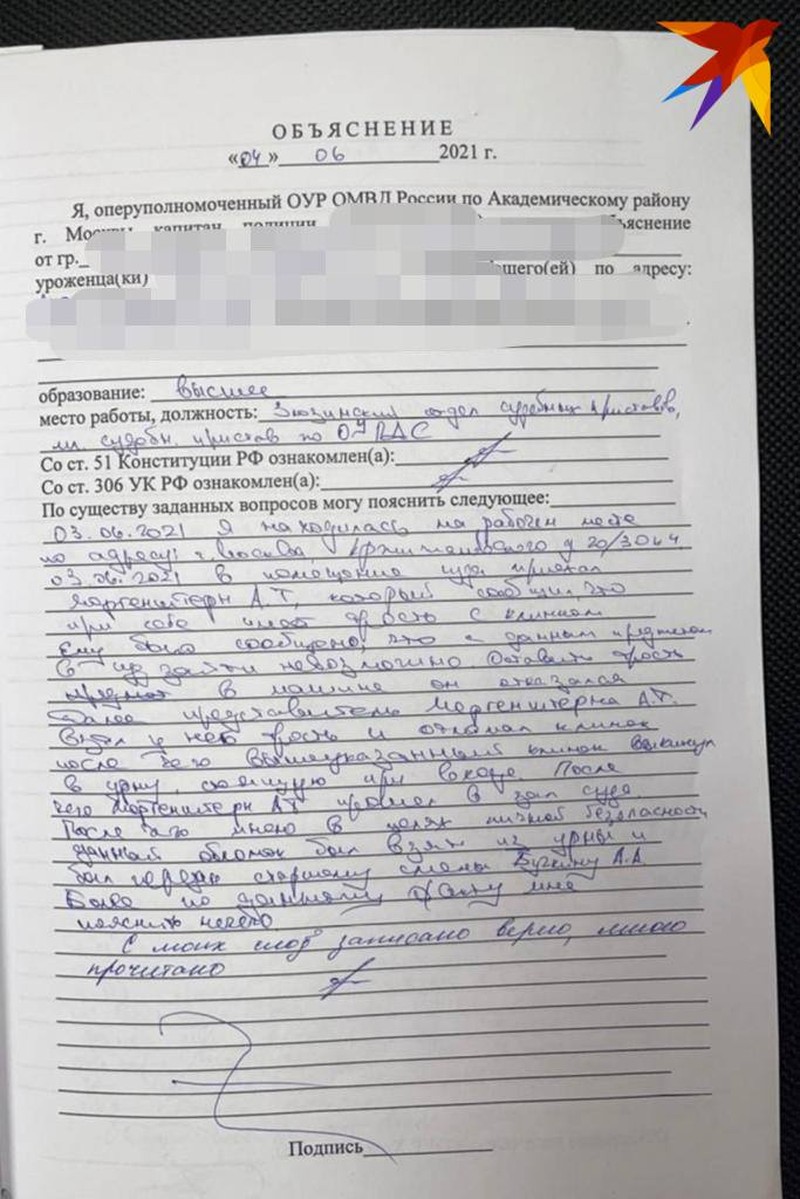 ОБЪЯСНЕНИЕ
«04» 06 2021 г.
Я, оперуполномоченный ОУР ОМВД России по Академическому району
г. Москвы капитан полиции
от гр.
уроженца(ки) по адресу:
образование: высшее
место работы, должность: Зюзинский отдел судебных приставов,
мл. судебн. пристав по ОУПДС
Со ст. 51 Конституции РФ ознакомлен(а):
Со ст. 306 УК РФ ознакомлен(а):
По существу заданных вопросов могу пояснить следующее:
03.06.2021 Я находилась на рабочем месте
по адресу: г. Москва, Кржижановского д 20/30
03.06.2021 в помещение суда приехал
Моргенштерн А.Т, который сообщил, что
при себе имеет трость с клинком
Ему было сообщено, что с данным предметом
в зайти невозможно. Оставить трость
в машине он отказался
Далее представитель Моргенштерна А.Т.
взял у него трость и отломал клинок
после чего вышеуказанный клинок выкинул
в урну, стоящую при входе. После
чего Моргенштерн А.Т прошел в зал суда.
После чего мною в целях личной безопасности
данный обломок был взят из урны и
был передан старшему смены А.А
Более по данному факту мне
пояснить нечего
С моих слов записано верно, мною
прочитано
Подпись